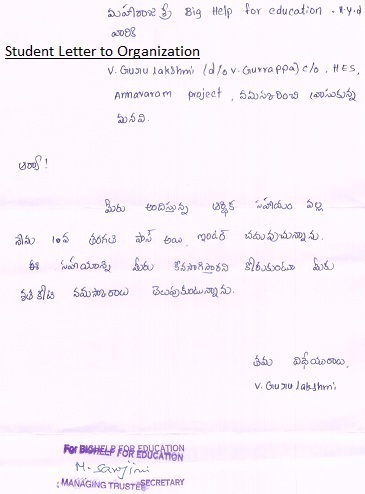 మహారాజశ్రీ Big Help for education . H.Y.d
వారికి
Student Letter to Organization
V. Guru lakshmi (d/o V. Gurrappa) c/o, HES,
Annavaram project, నమస్కరించి వ్రాసుకున్న
మనవి.
ఆర్యా!
మీరు అందిస్తున్న ఆర్థిక సహాయం వల్ల
నేను 10వ తరగతి పాస్ అయి, ఇంటర్ చదువుచున్నాను.
ఈ సహాయాన్ని మీరు కొనసాగిస్తారని కోరుకుంటూ మీకు
శతకోటి నమస్కారాలు తెలుపుకుంటున్నాను.
తమ విధేయురాలు,
V. Guru lakshmi
For BIGHELP FOR EDUCATION
FOR EDUCATION
M. Sarojini
MANAGING TRUSTEE
SECRETARY